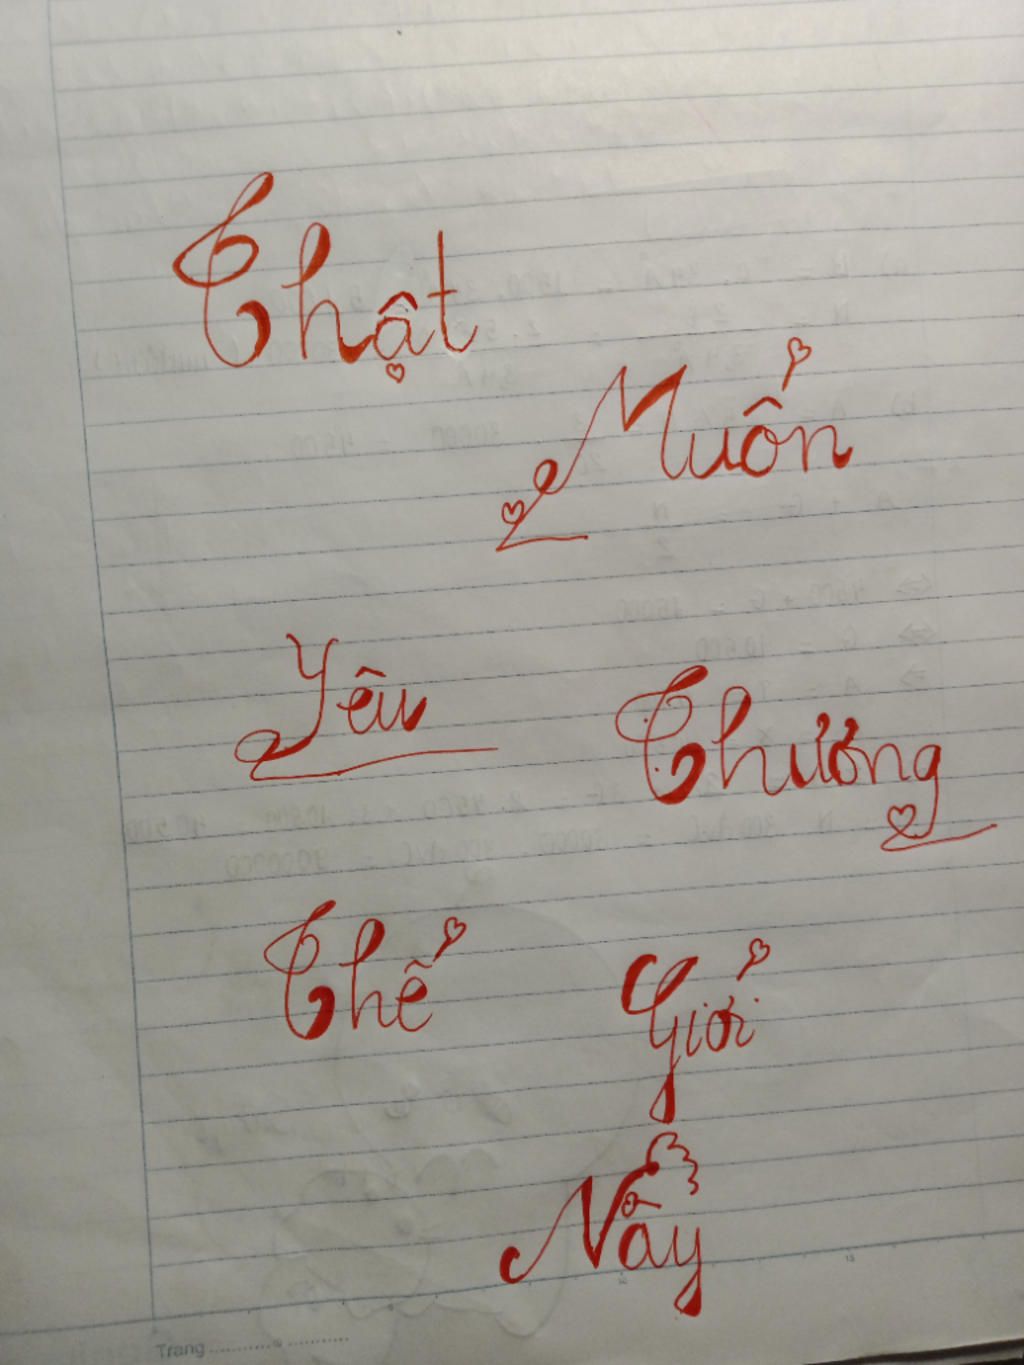 Thật
Muốn
Yêu Thương
Thế Giới
Nầy
Trang